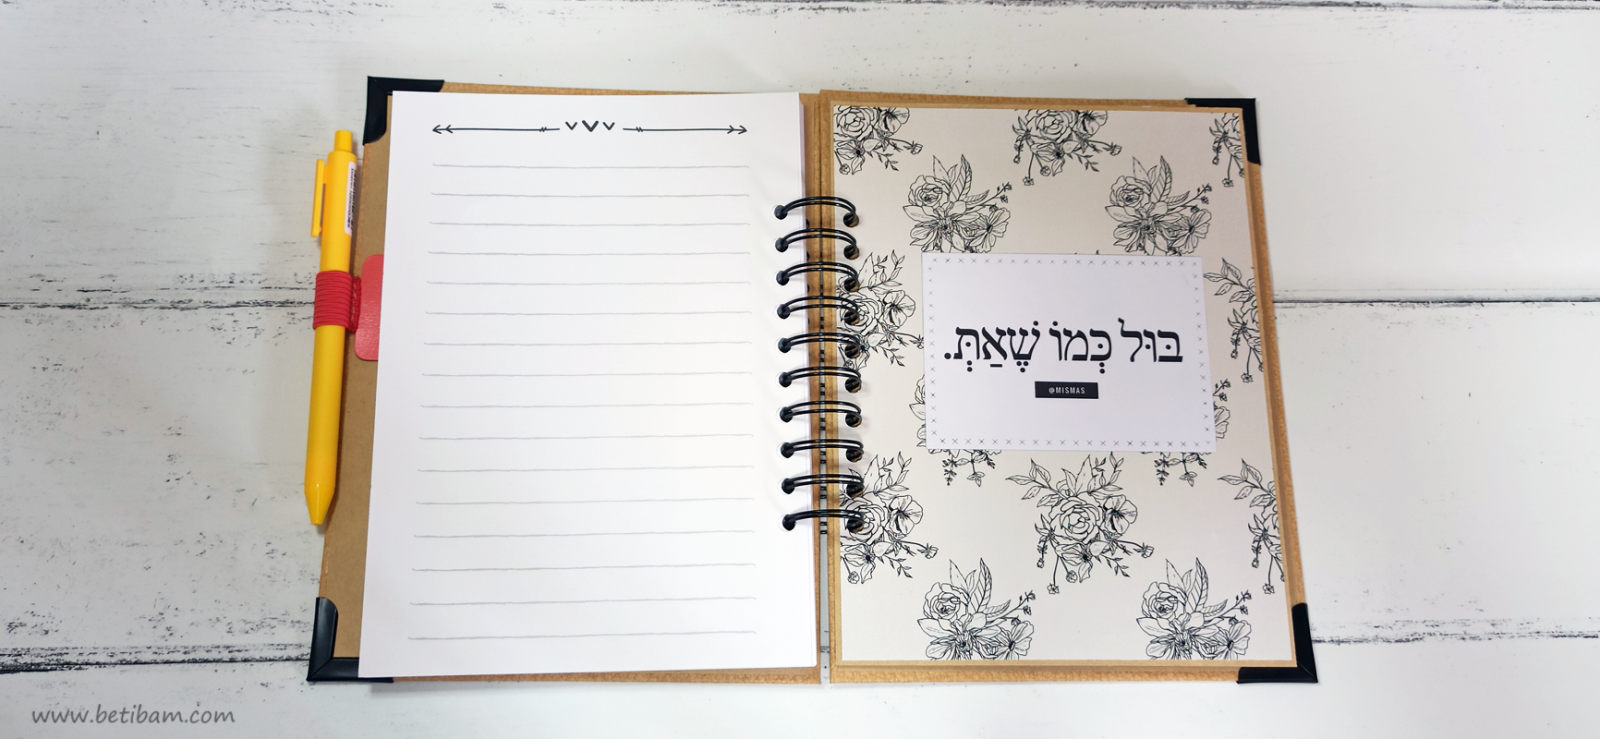 בּוּל כְּמוֹ שֶׁאַתְּ.
@MISMAS
www.betibam.com